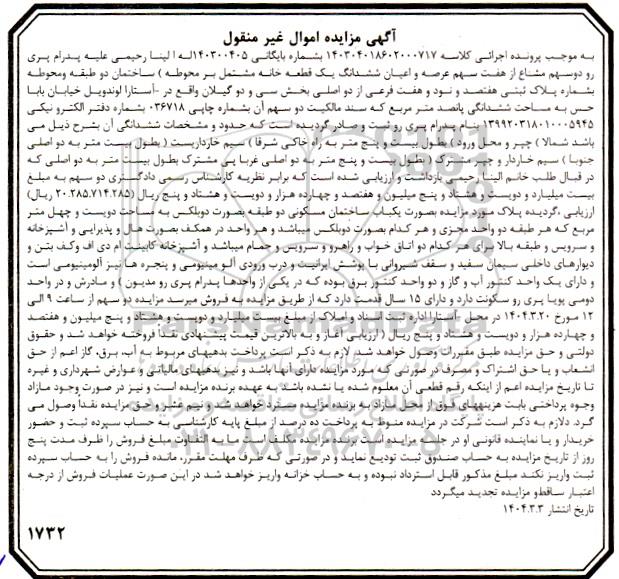 آگهی مزایده اموال غیر منقول
به موجب پرونده اجرائی کلاسه ۱۴۰۳۰۴۰۱۸۶۰۲۰۰۰۷۱۷ بشماره بایگانی ۱۴۰۳۰۰۴۰۵له ا لینا رحیمی علیه پدرام پری
رو دوسهم مشاع از هفت سهم عرصه و اعیان ششدانگ یک قطعه خانه مشتمل بر محوطه ) ساختمان دو طبقه ومحوطه
بشماره پلاک ثبتی هفتصد و نود و هفت فرعی از دو اصلی بخش سی و دو گیلان واقع در -آستارا لوندویل خیابان بابا
حس به مساحت ششدانگی پانصد متر مربع که سند مالکیت دو سهم آن بشماره چاپی ۰۳۶۷۱۸ بشماره دفتر الکترو نیکی
۱۳۹۹۲۰۳۱۸۰۱۰۰۰۵۹۴۵ بنام پدرام پری روثبت و صادر گردیده است که حدود و مشخصات ششدانگی آن بشرح ذیل می
باشد شمالا ) چپر و محل ورود ) بطول بیست و پنج متر به راه خاکی شرقا ) سیم خارداریست ( بطول بیست متر به دو اصلی
جنوبا ) سیم خاردار و چپر مشترک ( بطول بیست و پنج متر به دو اصلی غربا پی مشترک بطول بیست متر به دو اصلی که
در قبال طلب خانم الینا رحیمی بازداشت و ارزیابی شده است که برابر نظریه کارشناس رسمی دادگستری دو سهم به مبلغ
بیست میلیارد و دویست و هشتاد و پنج میلیون و هفتصد و چهارده هزار و دویست و هشتاد و پنج ریال (۲۰.۲۸۵.۷۱۴.۲۸۵ ریال)
ارزیابی ،گردیده پلاک مورد مزایده بصورت یکباب ساختمان مسکونی دو طبقه بصورت دوبلکس به مساحت دویست و چهل متر
مربع که هر طبقه دو واحد مجزی و هر کدام بصورت دوبلکس میباشد و هر واحد در همکف بصورت هال و پذیرایی و آشپزخانه
و سرویس و طبقه بالا برای هر کدام دو اتاق خواب و راهرو و سرویس و حمام میباشد و آشپزخانه کابینت ام دی اف وکف بتن و
دیوارهای داخلی سیمان سفید و سقف شیروانی با پوشش ایرانیت و درب ورودی آلو مینیومی و پنجره ها نیز آلومینیومی است
و دارای یک واحد کنتور آب و گاز و دو واحد کنتور برق بوده که در یکی از واحدها پدرام پری رو مدیون و مادرش و در واحد
دومی پویا پری رو سکونت دارد و دارای ۱۵ سال قدمت دارد که از طریق مزایده به فروش میرسد مزایده دو سهم از ساعت ۹ الی
۱۲ مورخ ۱۴۰۴.۳.۲۰ در محل -آستارا اداره ثبت اسناد و املاک از مبلغ بیست میلیارد و دویست و هشتاد و پنج میلیون و هفتصد
و چهارده هزار و دویست و هشتاد و پنج ریال ( ارزیابی آغاز و به بالاترین قیمت پیشنهادی نقداً فروخته خواهد شد و حقوق
دولتی و حق مزایده طبق مقررات وصول خواهد شد. لازم به ذکر است پرداخت بدهیهای مربوط به آب، برق، گاز اعم از حق
انشعاب و یا حق اشتراک و مصرف در صورتی که مورد مزایده دارای آنها باشد و نیز بدهیهای مالیاتی و عوارض شهرداری و غیره
تا تاریخ مزایده اعم از اینکه رقم قطعی آن معلوم شده یا نشده باشد به عهده برنده مزایده است و نیز در صورت وجود مازاد
وجوه پرداختی بابت هزینههای فوق از محل مازاد به برنده مزایده مسترد خواهد شد و نیم عشر و حق مزایده نقداً وصول می
گردد. دلازم به ذکر است شرکت در مزایده منوط به پرداخت ده درصد از مبلغ پایه کارشناسی به حساب سپرده ثبت و حضور
خریدار و یا نماینده قانونی او در جلسه مزایده است برنده مزایده مکلف است ما به التفاوت مبلغ فروش را ظرف مدت پنج
روز از تاریخ مزایده به حساب صندوق ثبت تودیع نماید و در صورتی که ظرف مهلت مقرر، مانده فروش را به حساب سپرده
ثبت واریز نکند مبلغ مذکور قابل استرداد نبوده و به حساب خزانه واریز خواهد شد در این صورت عملیات فروش از درجه
اعتبار ساقطو مزایده تجدید میگردد
تاریخ انتشار ۱۴۰۴.۳.۳
۱۷۳۲